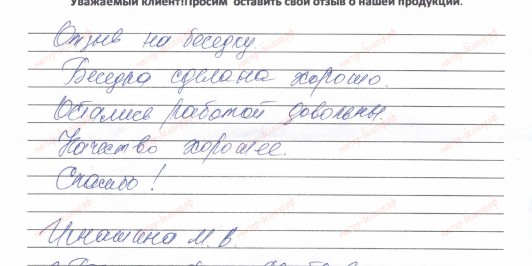 Уважаемый клиент!Просим оставить свой отзыв о нашей продукции.
Отзыв на беседку.
Беседка сделана хорошо.
Остались работой довольны.
Качество хорошее.
Спасибо!
Игнашина М. В.